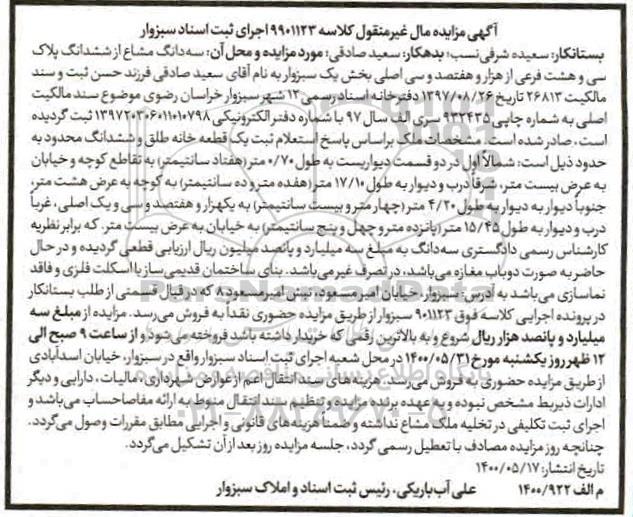 آگهی مزایده مال غیرمنقول کلاسه ۹۹۰۱۱۲۳ اجرای ثبت اسناد سبزوار
بستانکار: سعیده شرفی‌نسب؛ بدهکار: سعید صادقی؛ مورد مزایده و محل آن: سه‌دانگ مشاع از ششدانگ پلاک
سی و هشت فرعی از هزار و هفتصد و سی اصلی بخش یک سبزوار به نام آقای سعید صادقی فرزند حسن ثبت و سند
مالکیت ۲۶۸۱۳ تاریخ ۱۳۹۷/۰۸/۲۶ دفترخانه اسناد رسمی ۱۲ شهر سبزوار خراسان رضوی موضوع سند مالکیت
اصلی به شماره چاپی ۹۳۲۴۳۵ سری الف سال ۹۷ با شماره دفتر الکترونیکی ۱۳۹۷۲۰۳۰۶۰۱۱۰۱۰۷۹۸ ثبت گردیده
است، صادر شده است. مشخصات ملک براساس پاسخ استعلام ثبت یک قطعه خانه طلق و ششدانگ محدود به
حدود ذیل است: شمالاً اول در دو قسمت دیواریست به طول ۰/۷۰ متر (هفتاد سانتیمتر) به تقاطع کوچه و خیابان
به عرض بیست متر، شرقاً درب و دیوار به طول ۱۷/۱۰ متر (هفده متر و ده سانتیمتر) به کوچه به عرض هشت متر،
جنوباً دیوار به دیوار به طول ۴/۲۰ متر (چهار متر و بیست سانتیمتر) به یکهزار و هفتصد و سی و یک اصلی، غرباً
درب و دیوار به طول ۱۵/۴۵ متر (پانزده متر و چهل و پنج سانتیمتر) به خیابان به عرض بیست متر. که برابر نظریه
کارشناس رسمی دادگستری سه‌دانگ به مبلغ سه میلیارد و پانصد میلیون ریال ارزیابی قطعی گردیده و در حال
حاضر به صورت دوباب مغازه می‌باشد، در تصرف غیر می‌باشد. بنای ساختمان قدیمی‌ساز با اسکلت فلزی و فاقد
نماسازی می‌باشد به آدرس: سبزوار، خیابان امیر مسعود، نبش امیرمسعود ۸ که در قبال قسمتی از طلب بستانکار
در پرونده اجرایی کلاسه فوق ۹۰۱۱۲۳ سبزوار از طریق مزایده حضوری نقداً به فروش می‌رسد. مزایده از مبلغ سه
میلیارد و پانصد هزار ریال شروع و به بالاترین رقمی که خریدار داشته باشد فروخته می‌شود و از ساعت ۹ صبح الی
۱۲ ظهر روز یکشنبه مورخ ۱۴۰۰/۰۵/۳۱ در محل شعبه اجرای ثبت اسناد سبزوار واقع در سبزوار، خیابان اسدآبادی
از طریق مزایده حضوری به فروش می‌رسد. هزینه‌های سند انتقال اعم از عوارض شهرداری، مالیات، دارایی و دیگر
ادارات ذیربط مشخص نبوده و به عهده برنده مزایده و تنظیم سند انتقال منوط به ارائه مفاصاحساب می‌باشد و
اجرای ثبت تکلیفی در تخلیه ملک مشاع نداشته و ضمناً هزینه‌های قانونی و اجرایی مطابق مقررات وصول می‌گردد.
چنانچه روز مزایده مصادف با تعطیل رسمی گردد، جلسه مزایده روز بعد از آن تشکیل می‌گردد.
تاریخ انتشار: ۱۴۰۰/۰۵/۱۷
م الف ۱۴۰۰/۹۲۲ علی آب‌باریکی، رئیس ثبت اسناد و املاک سبزوار